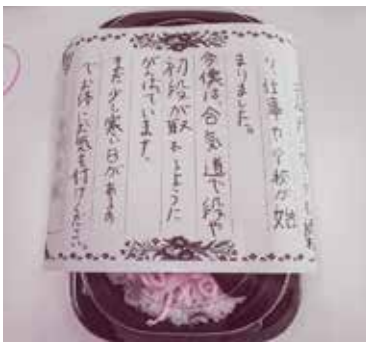 り、仕事や学校が始
まりました。
今僕は合気道で段や
初段が取れるように
がんばています。
まだ少し寒い日がありますの
でお体にお気を付けください。